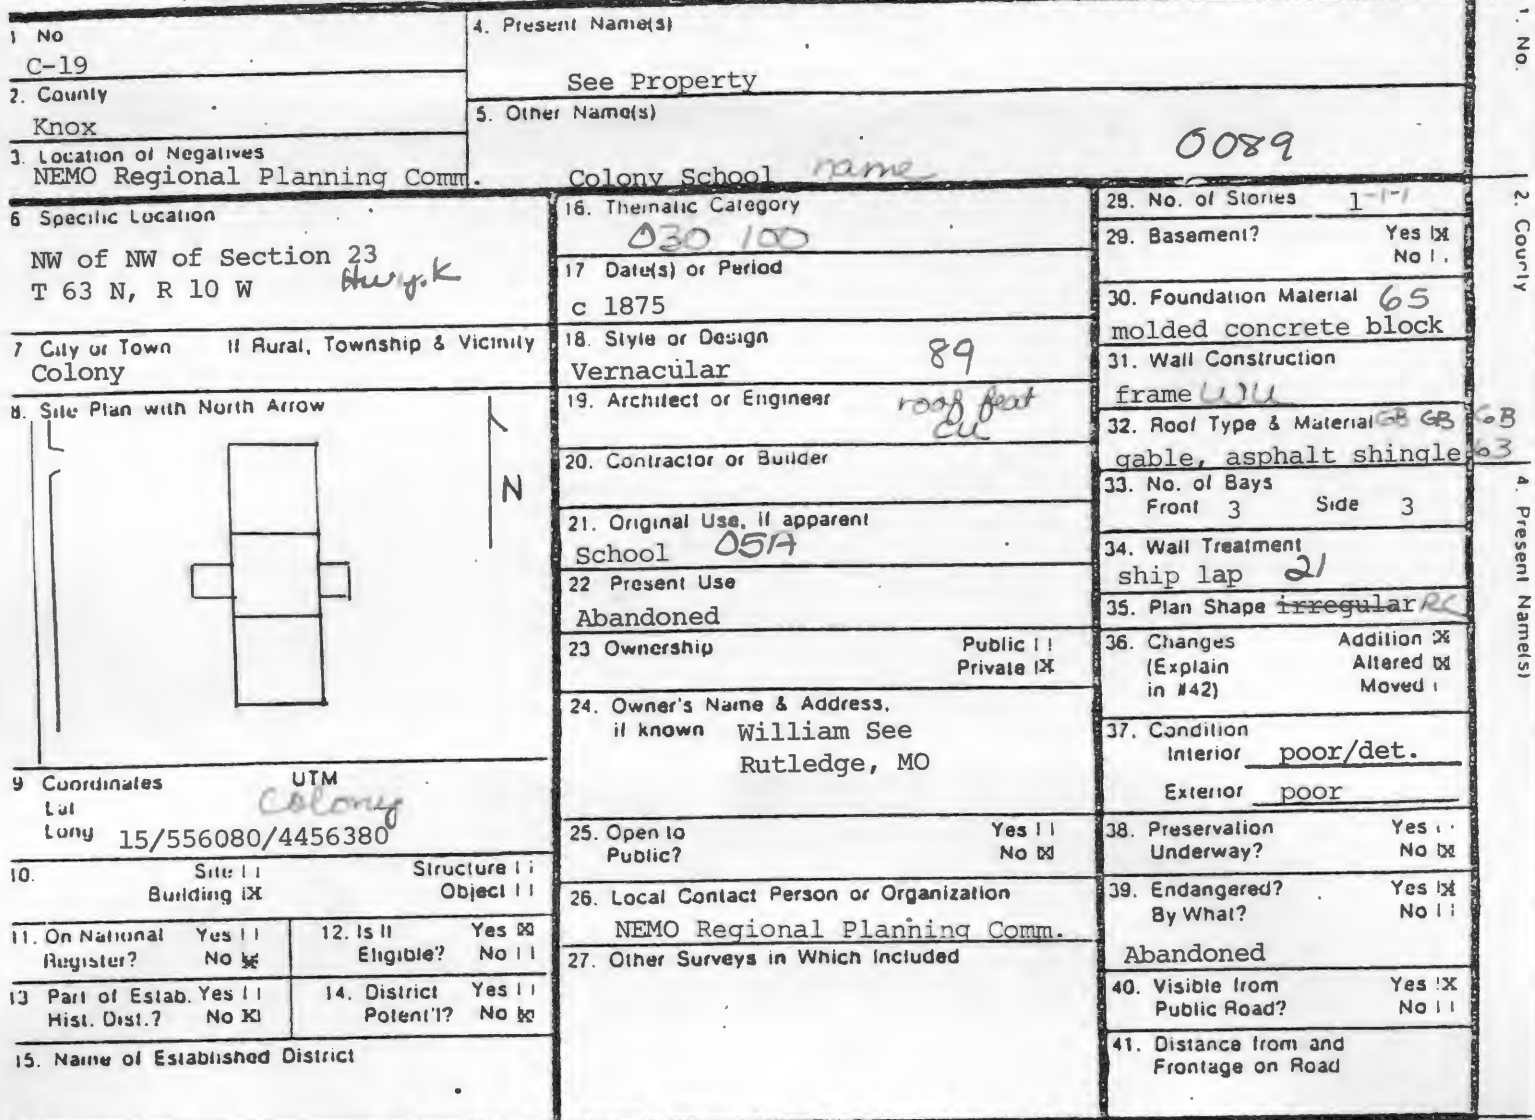 1 No
C-19
2. County
Knox
3. Location of Negatives
NEMO Regional Planning Comm.
4. Present Name(s)
See Property
5. Other Name(s)
Colony School name
0089
6 Specific Location
NW of NW of Section 23
T 63 N, R 10 W Hwy. K
7 City or Town If Rural, Township & Vicinity
Colony
8. Site Plan with North Arrow
N
9 Coordinates UTM
Lat Colony
Long 15/556080/4456380
10. Site Structure
Building X Object
11. On National Yes
Register? No X
12. Is It Yes X
Eligible? No
13 Part of Estab. Yes
Hist. Dist.? No X
14. District Yes
Potent'l? No X
15. Name of Established District
16. Thematic Category
030 100
17 Date(s) or Period
c 1875
18. Style or Design
Vernacular 89
19. Architect or Engineer roof feat
CU
20. Contractor or Builder
21. Original Use, if apparent
School 05A
22 Present Use
Abandoned
23 Ownership Public
Private X
24. Owner's Name & Address,
if known William See
Rutledge, MO
25. Open to Yes
Public? No X
26. Local Contact Person or Organization
NEMO Regional Planning Comm.
27. Other Surveys in Which Included
28. No. of Stories 1-1-1
29. Basement? Yes X
No
30. Foundation Material 65
molded concrete block
31. Wall Construction
frame
32. Roof Type & Material GB GB GB
gable, asphalt shingle 63
33. No. of Bays
Front 3 Side 3
34. Wall Treatment
ship lap 21
35. Plan Shape irregular RC
36. Changes Addition X
(Explain Altered X
in #42) Moved
37. Condition
Interior poor/det.
Exterior poor
38. Preservation Yes
Underway? No X
39. Endangered? Yes X
By What? No
Abandoned
40. Visible from Yes X
Public Road? No
41. Distance from and
Frontage on Road
1. No.
2. County
4. Present Name(s)